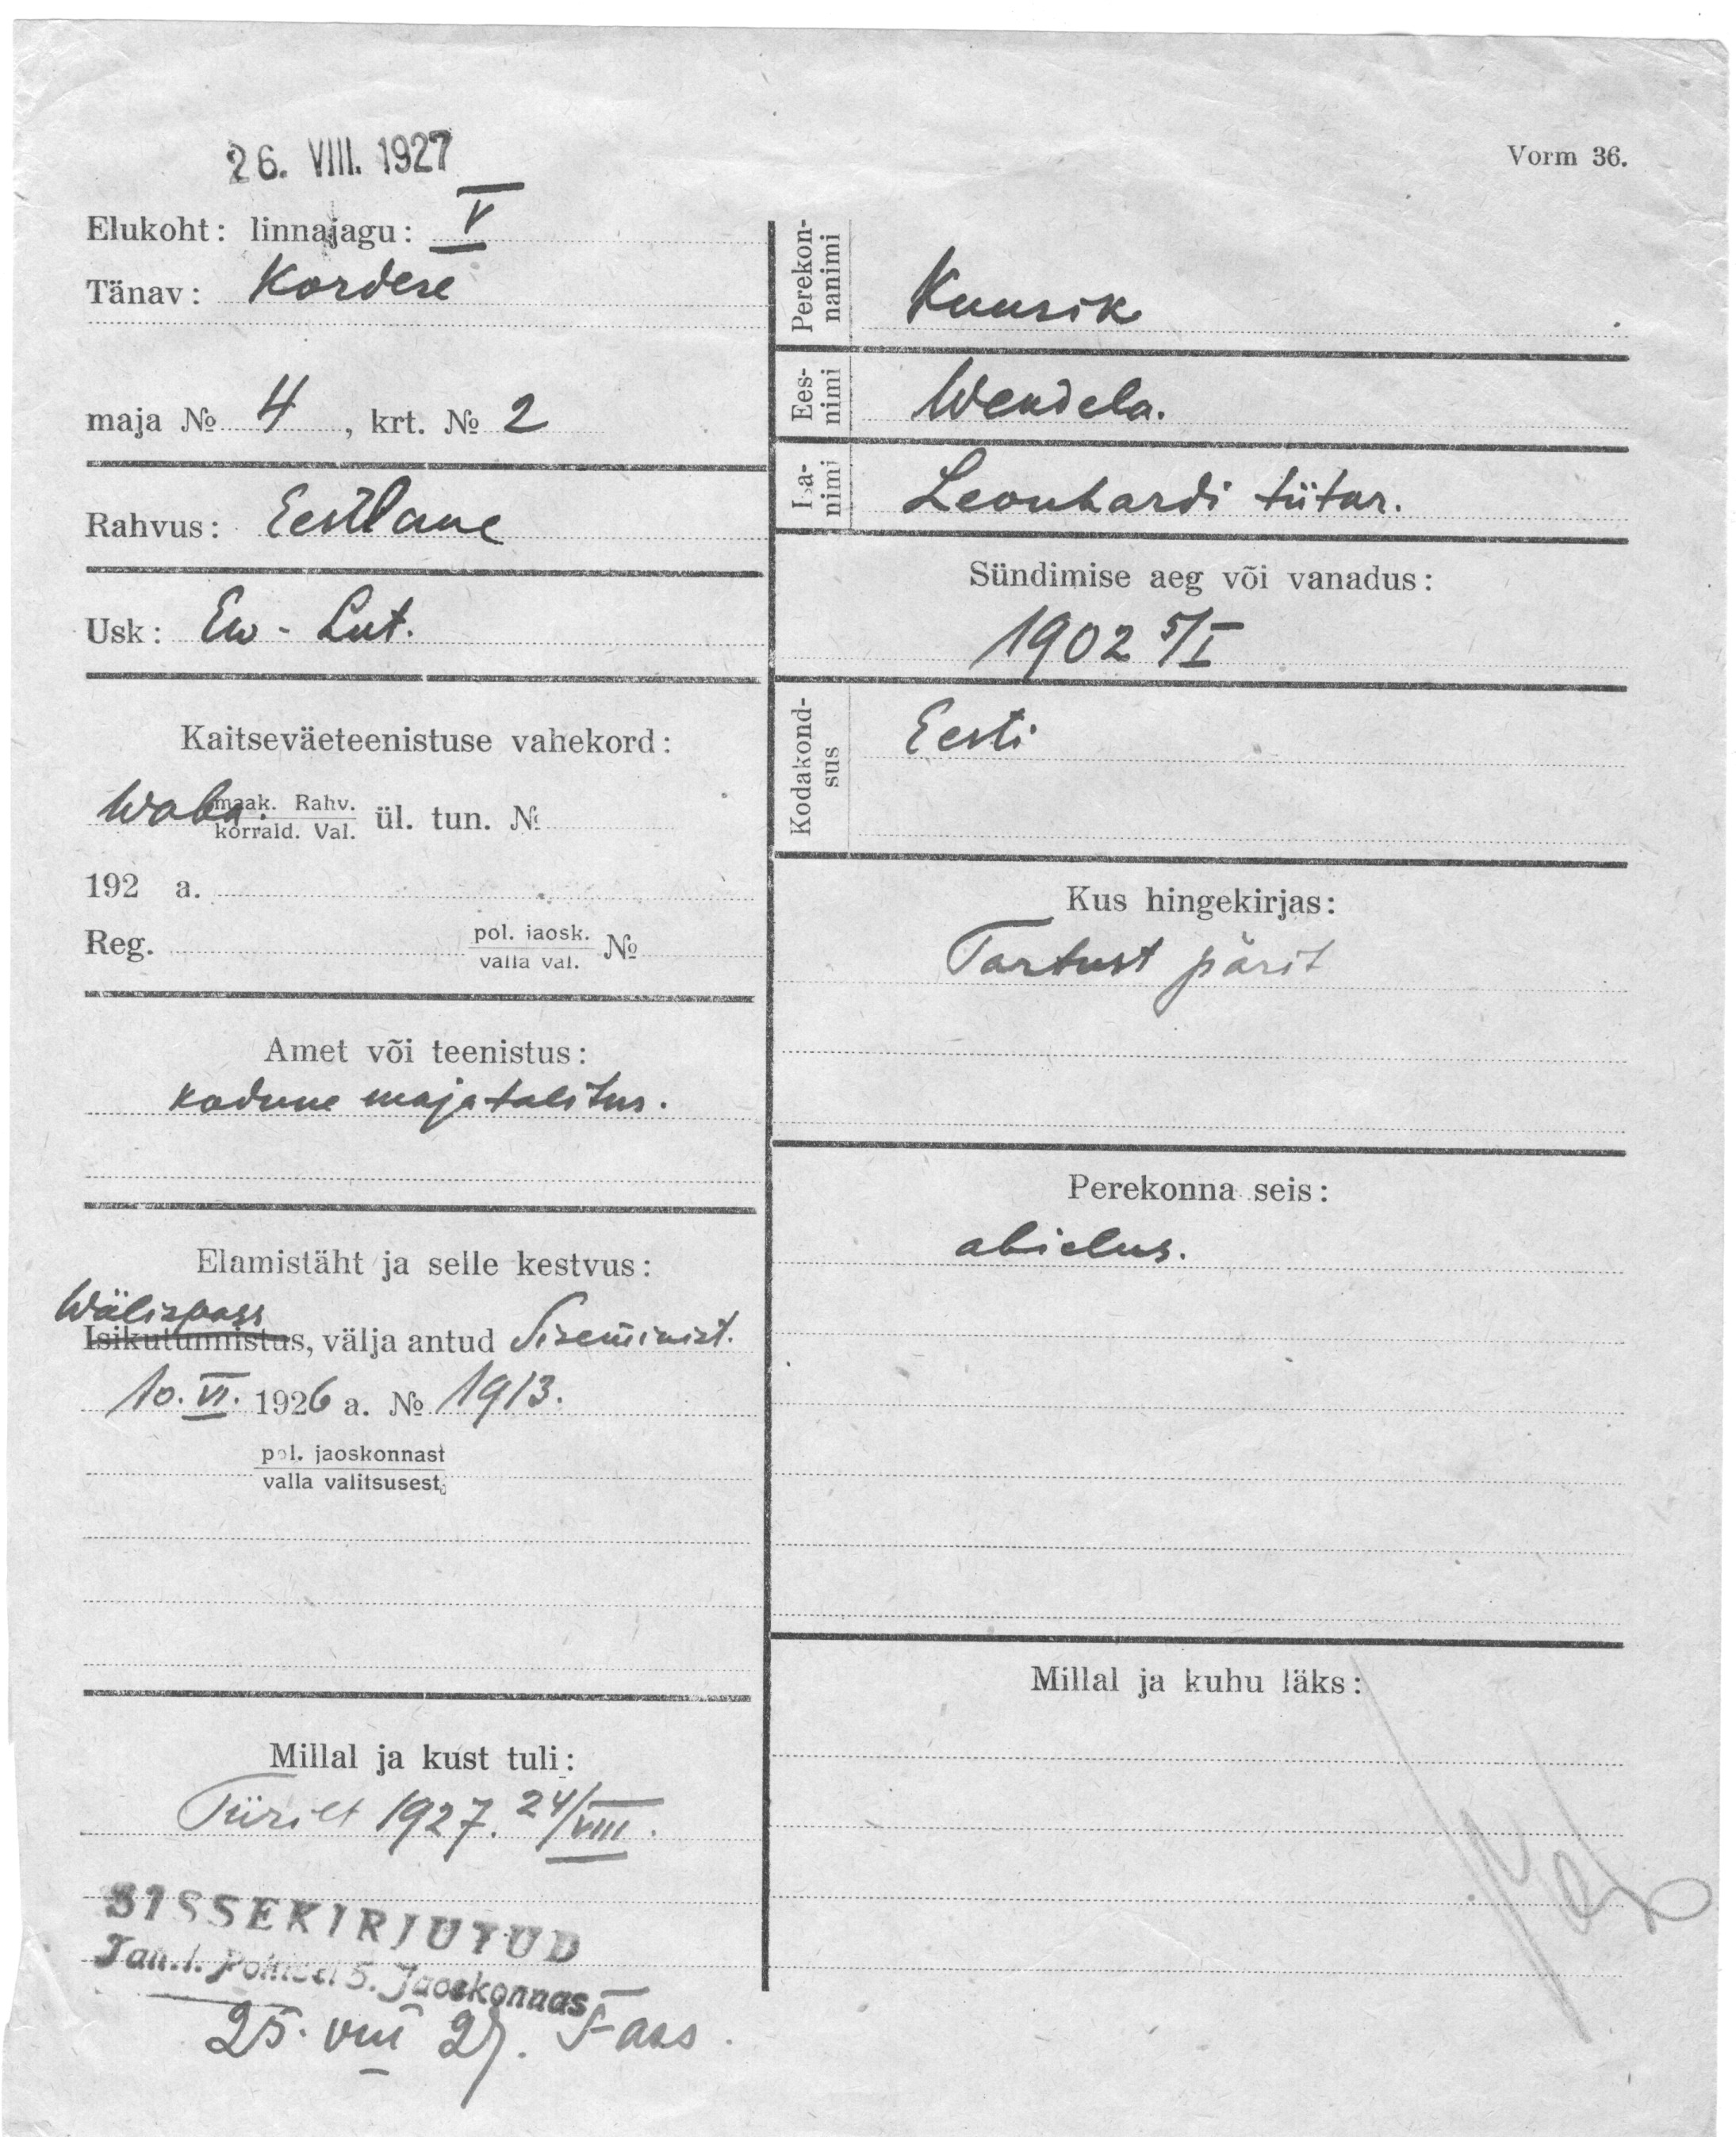 26. VIII. 1927
Vorm 36.
Elukoht: linnajagu: V
Tänav: Kordese
maja № 4, krt. № 2
Rahvus: Eestlane
Usk: Ew - Lut.
Kaitseväeteenistuse vahekord:
Waba. maak. Rahv. ül. tun. №
korrald. Val.
192 a.
Reg. pol. jaosk. №
valla val.
Amet või teenistus:
kodune majatalitus.
Elamistäht ja selle kestvus:
Wälispass
Isikutunnistus, välja antud Siseminist.
10. VI. 1926 a. № 1913.
pol. jaoskonnast
valla valitsusest
Millal ja kust tuli:
Türilt 1927. 24/VIII.
SISSEKIRJUTUD
Tall.l. Politsei 5. Jaoskonnas
25. VIII 27.
Perekon-
nanimi
Kuusik
Ees-
nimi
Wendela.
Isa-
nimi
Leonhardi tütar.
Sündimise aeg või vanadus:
1902 5/I
Kodakond-
sus
Eesti
Kus hingekirjas:
Tartust pärit
Perekonna seis:
abielus.
Millal ja kuhu läks: